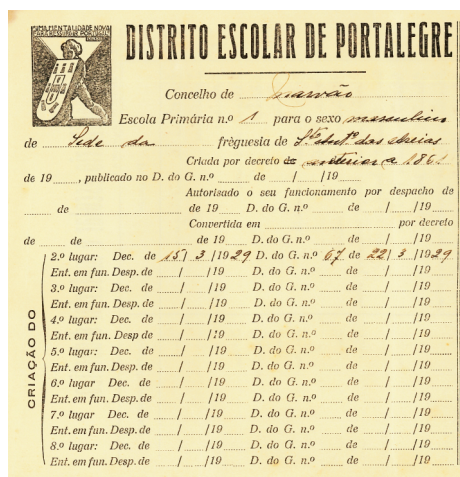 UMA MENTALIDADE NOVA
DISTRITO ESCOLAR DE PORTALEGRE
Concelho de Marvão
Escola Primária n.º 1 para o sexo masculino
de Sede da frèguesia de S.to Ant.º das Areias
Criada por decreto de anterior a 1861
de 19 , publicado no D. do G. n.º de / /19
Autorisado o seu funcionamento por despacho de
de de 19 D. do G. n.º de / /19
Convertida em por decreto
de de de 19 D. do G. n.º de / /19
CRIAÇÃO DO
2.º lugar: Dec. de 15/ 3 /1929 D. do G. n.º 67 de 22/ 3 /1929
Ent. em fun. Desp. de / /19 D. do G. n.º de / /19
3.º lugar: Dec. de / /19 D. do G. n.º de / /19
Ent. em fun. Desp. de / /19 D. do G. n.º de / /19
4.º lugar: Dec. de / /19 D. do G. n.º de / /19
Ent. em fun. Desp de / /19 D. do G. n.º de / /19
5.º lugar: Dec. de / /19 D. do G. n.º de / /19
Ent. em fun. Desp. de / /19 D. do G. n.º de / /19
6.º lugar Dec. de / /19 D. do G. n.º de / /19
Ent. em fun. Desp. de / /19 D. do G. n.º de / /19
7.º lugar Dec. de / /19 D. do G. n.º de / /19
Ent. em fun. Desp. de / /19 D. do G. n.º de / /19
8.º lugar: Dec. de / /19 D. do G. n.º de / /19
Ent. em fun. Desp. de / /19 D. do G. n.º de / /19